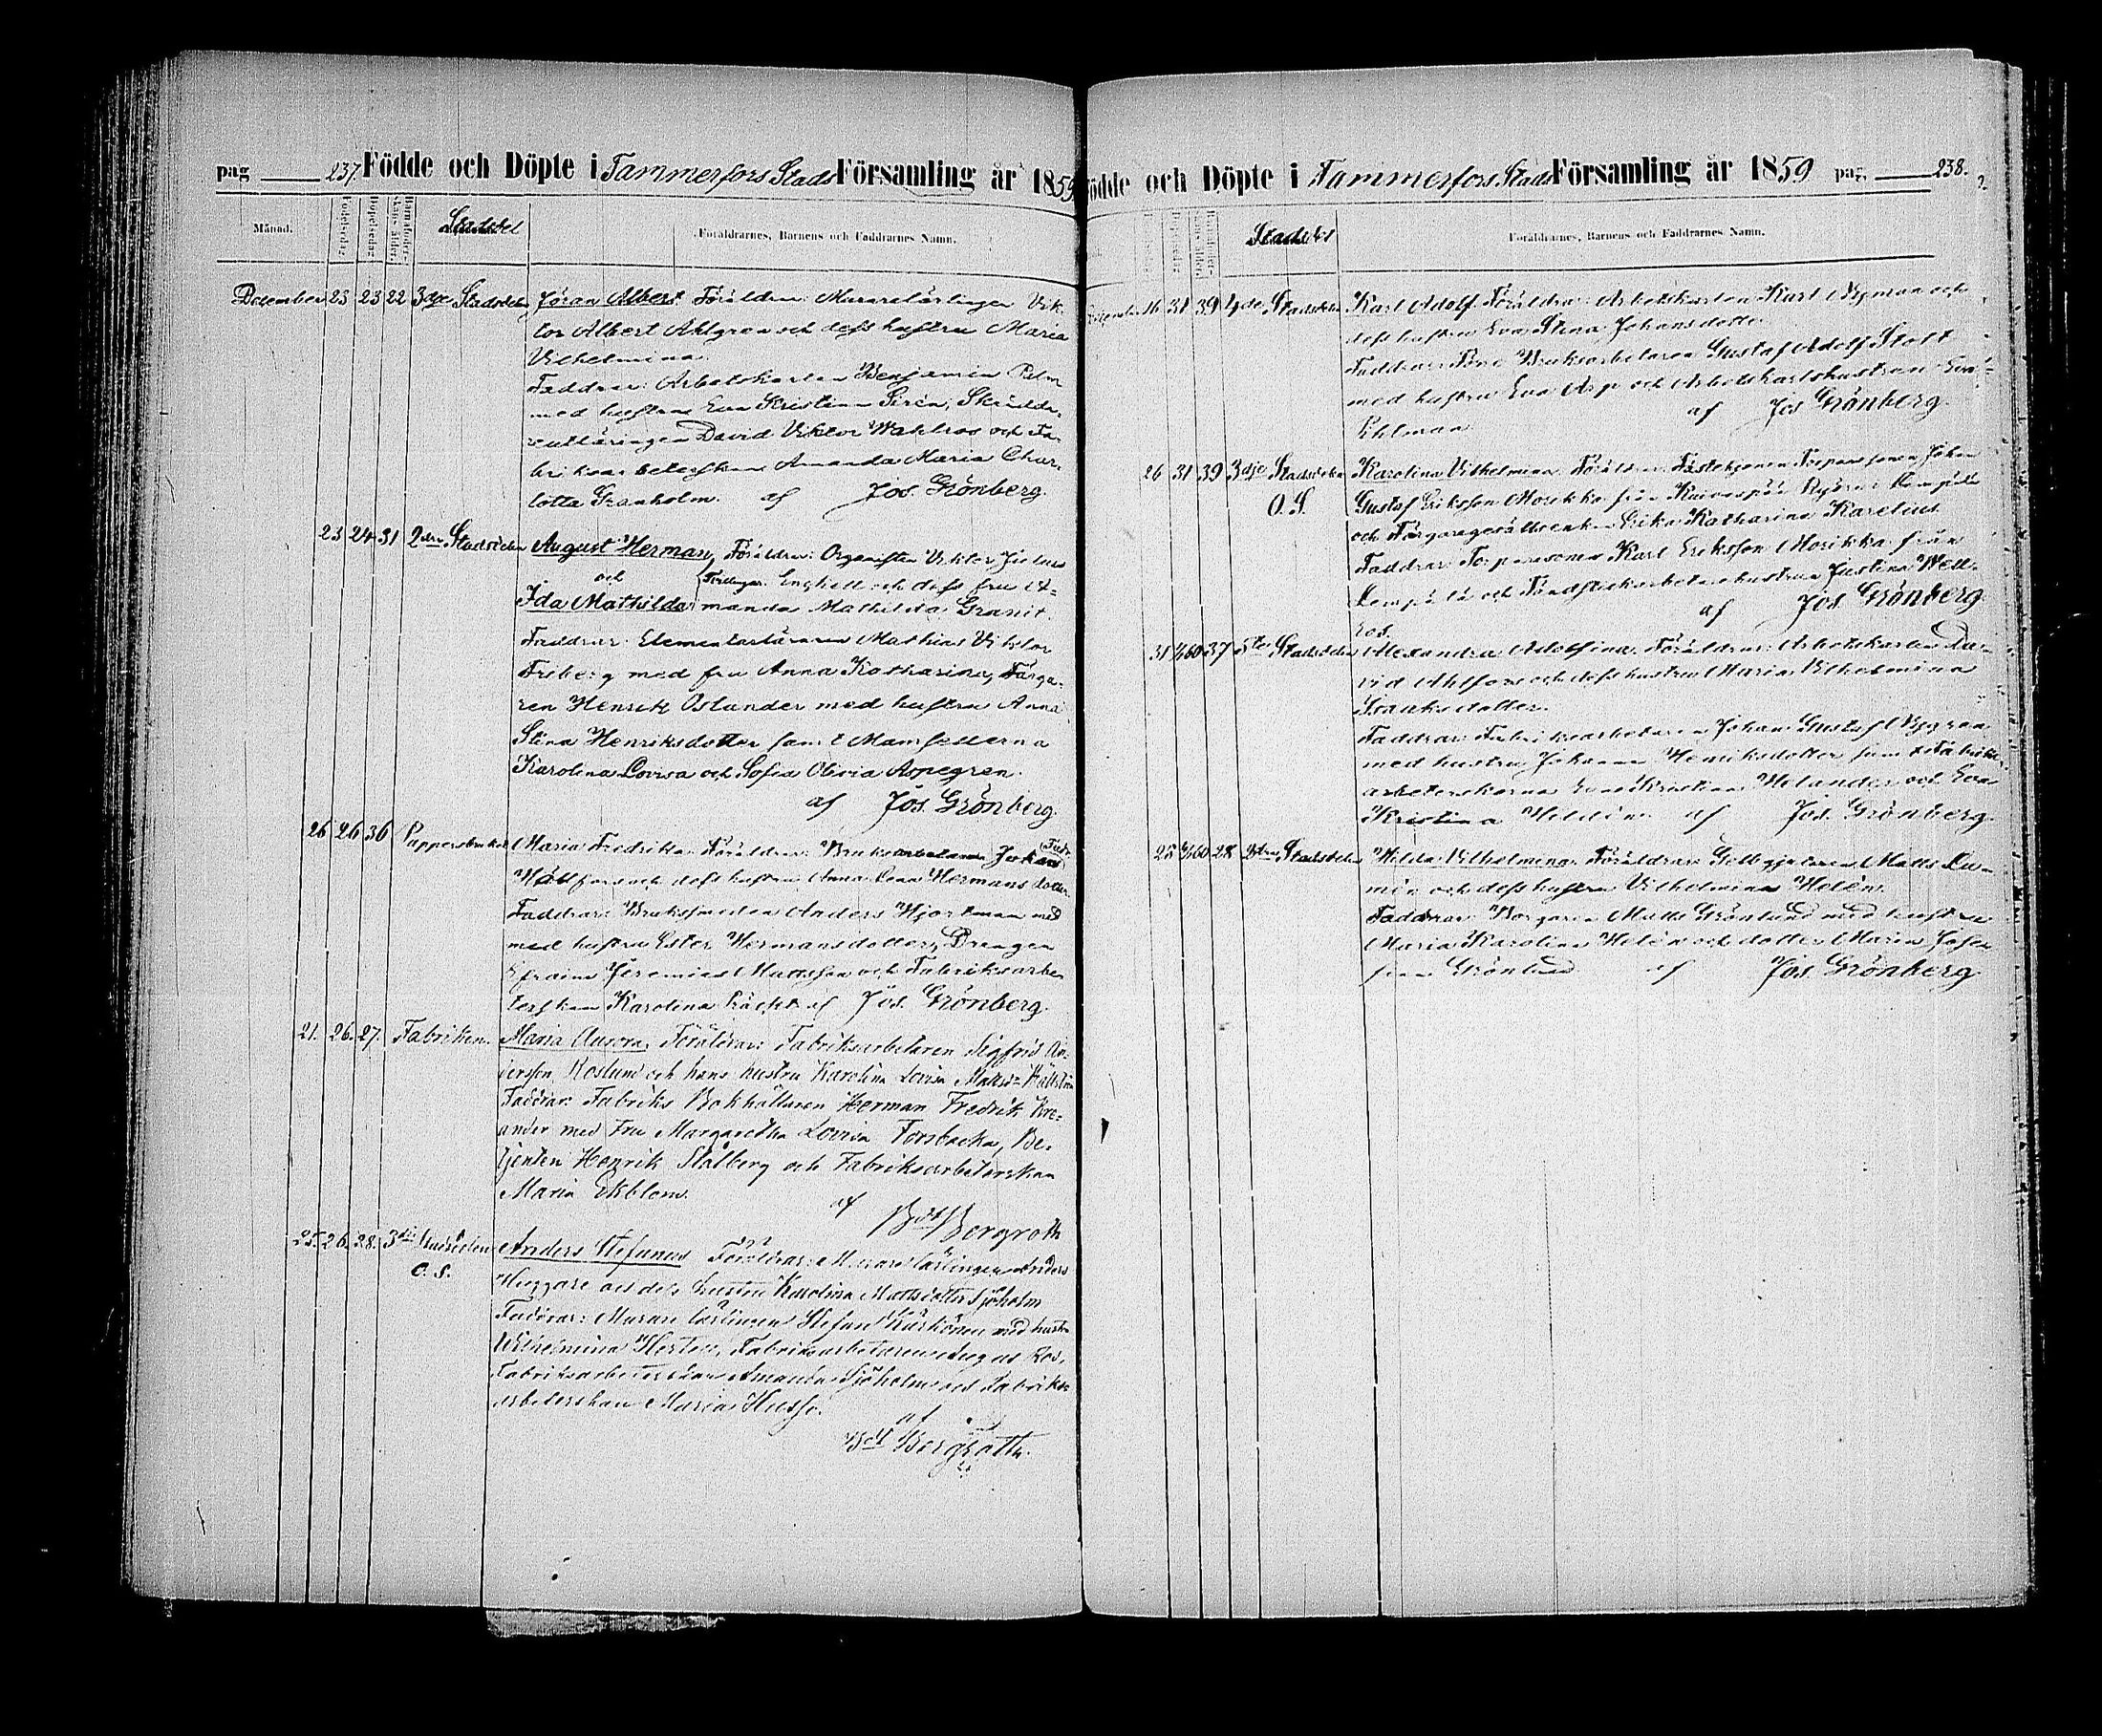 pag 237. Födde och Döpte i Tammerfors Stads Församling år 1859
Månad. Födelsedag Döpelsedag Stadsdel Föräldrarnes, Barnens och Faddrarnes Namn.
December 23 23 22 3dje Stadsdelen Jöran Albert Föräldrar: Murarelärlingen Vik-
tor Albert Ahlgren och dess hustru Maria
Vilhelmina.
Faddrar: Arbetskarlen Benjamin Palm
med hustru Eva Kristina Sirén, Skrädda-
relärlingen David Viktor Wahlros och Fa-
briksarbeterskan Amanda Maria Char-
lotta Granholm. af Jos. Grönberg.
23 24 31 2dra Stadsdelen August Herman, Föräldrar: Organisten Viktor Julius
och Tvillingar. Enghell och dess fru A-
Ida Mathilda manda Mathilda Granit.
Faddrar: Elementarläraren Mathias Viktor
Freberg med fru Anna Katharina, Färga-
ren Henrik Oslander med hustru Anna
Stina Henriksdotter samt Mamsellerna
Karolina Lovisa och Sofia Olivia Aspegren.
af Jos. Grönberg.
26 26 36 Pappersbruket Maria Fredrika Föräldrar: Bruksarbetaren Johan
och dess hustru Anna Lena Hermansdotter.
Faddrar: Brukssmeden Anders Hjortman med
med hustru Ester Hermansdotter, Drengen
Efraim Jeremias Mattsson och Fabriksarbe-
terskan Karolina af Jos. Grönberg.
21. 26. 27. Fabriken. Maria Aurora, Föräldrar: Fabriksarbetaren Sigfrid An-
dersson Roslund och hans hustru Karolina Lovisa
Faddrar: Fabriks Bokhållaren Herman Fredrik Kre-
ander med Fru Margaretha Lovisa Forsbacka, Be-
tjenten Henrik Stålberg och Fabriksarbeterskan
Maria Ekblom. af
Bdt Bergroth
25. 26. 28. 3dje Stadsdelen Anders Stefanus Föräldrar: Murare lärlingen Anders
O. S. Huggare och dess hustru Karolina Mattsdotter Sjöholm
Faddrar: Murare lärlingen Stefan Kärkönen med hustru
Wilhelmina Hertell, Fabriksarbetaren August Ros,
Fabriksarbeterskan Amanda Sjöholm och Fabriks
arbeterskan Maria Husso.
af
Bdt Bergroth.
Födde och Döpte i Tammerfors Stads Församling år 1859 pag. 238.
Stadsdel Föräldrarnes, Barnens och Faddrarnes Namn.
December 16 31 39 4de Stadsdelen Karl Adolf. Föräldrar: Arbetskarlen Karl Nyman och
dess hustru Eva Stina Johansdotter.
Faddrar: Förre Bruksarbetaren Gustaf Adolf Stolt
med hustru Eva Asp och Arbetskarlshustrun Eva
Pihlman af Jos Grönberg.
26 31 39 3dje Stadsdelen Karolina Vilhelmina. Föräldrar: Fästehjonen Torparesonen Johan
O. S. Gustaf Eriksson Morikka från Lempälä
och Färgaregesällsenkan Erika Katharina Karelius
Faddrar: Torparesonen Karl Eriksson Morikka från
Lempälä och Tändsticksarbetarehustrun Justina Well-
ros. af Jos. Grönberg
31 1/60 37 5te Stadsdelen Alexandra Adolfina. Föräldrar: Arbetskarlen Da-
vid Ahlfors och dess hustru Maria Vilhelmina
Isaksdotter.
Faddrar: Fabriksarbetaren Johan Gustaf Nygren
med hustru Johanna Henriksdotter samt Fabriks-
arbeterskorna Eva Kristina Helander och Eva
Kristina Heldén. af Jos. Grönberg.
25 6/1 60 28 2dra Stadsdelen Hilda Vilhelmina. Föräldrar: Gelbgjutaren Matts
och dess hustru Vilhelmina Helén.
Faddrar: Borgaren Matts Grönlund med hustru
Maria Karolina Helén och dotter Maria Jose-
fina Grönlund af Jos. Grönberg